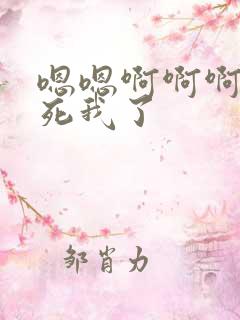 嗯嗯啊啊啊
死我了
邹肖力